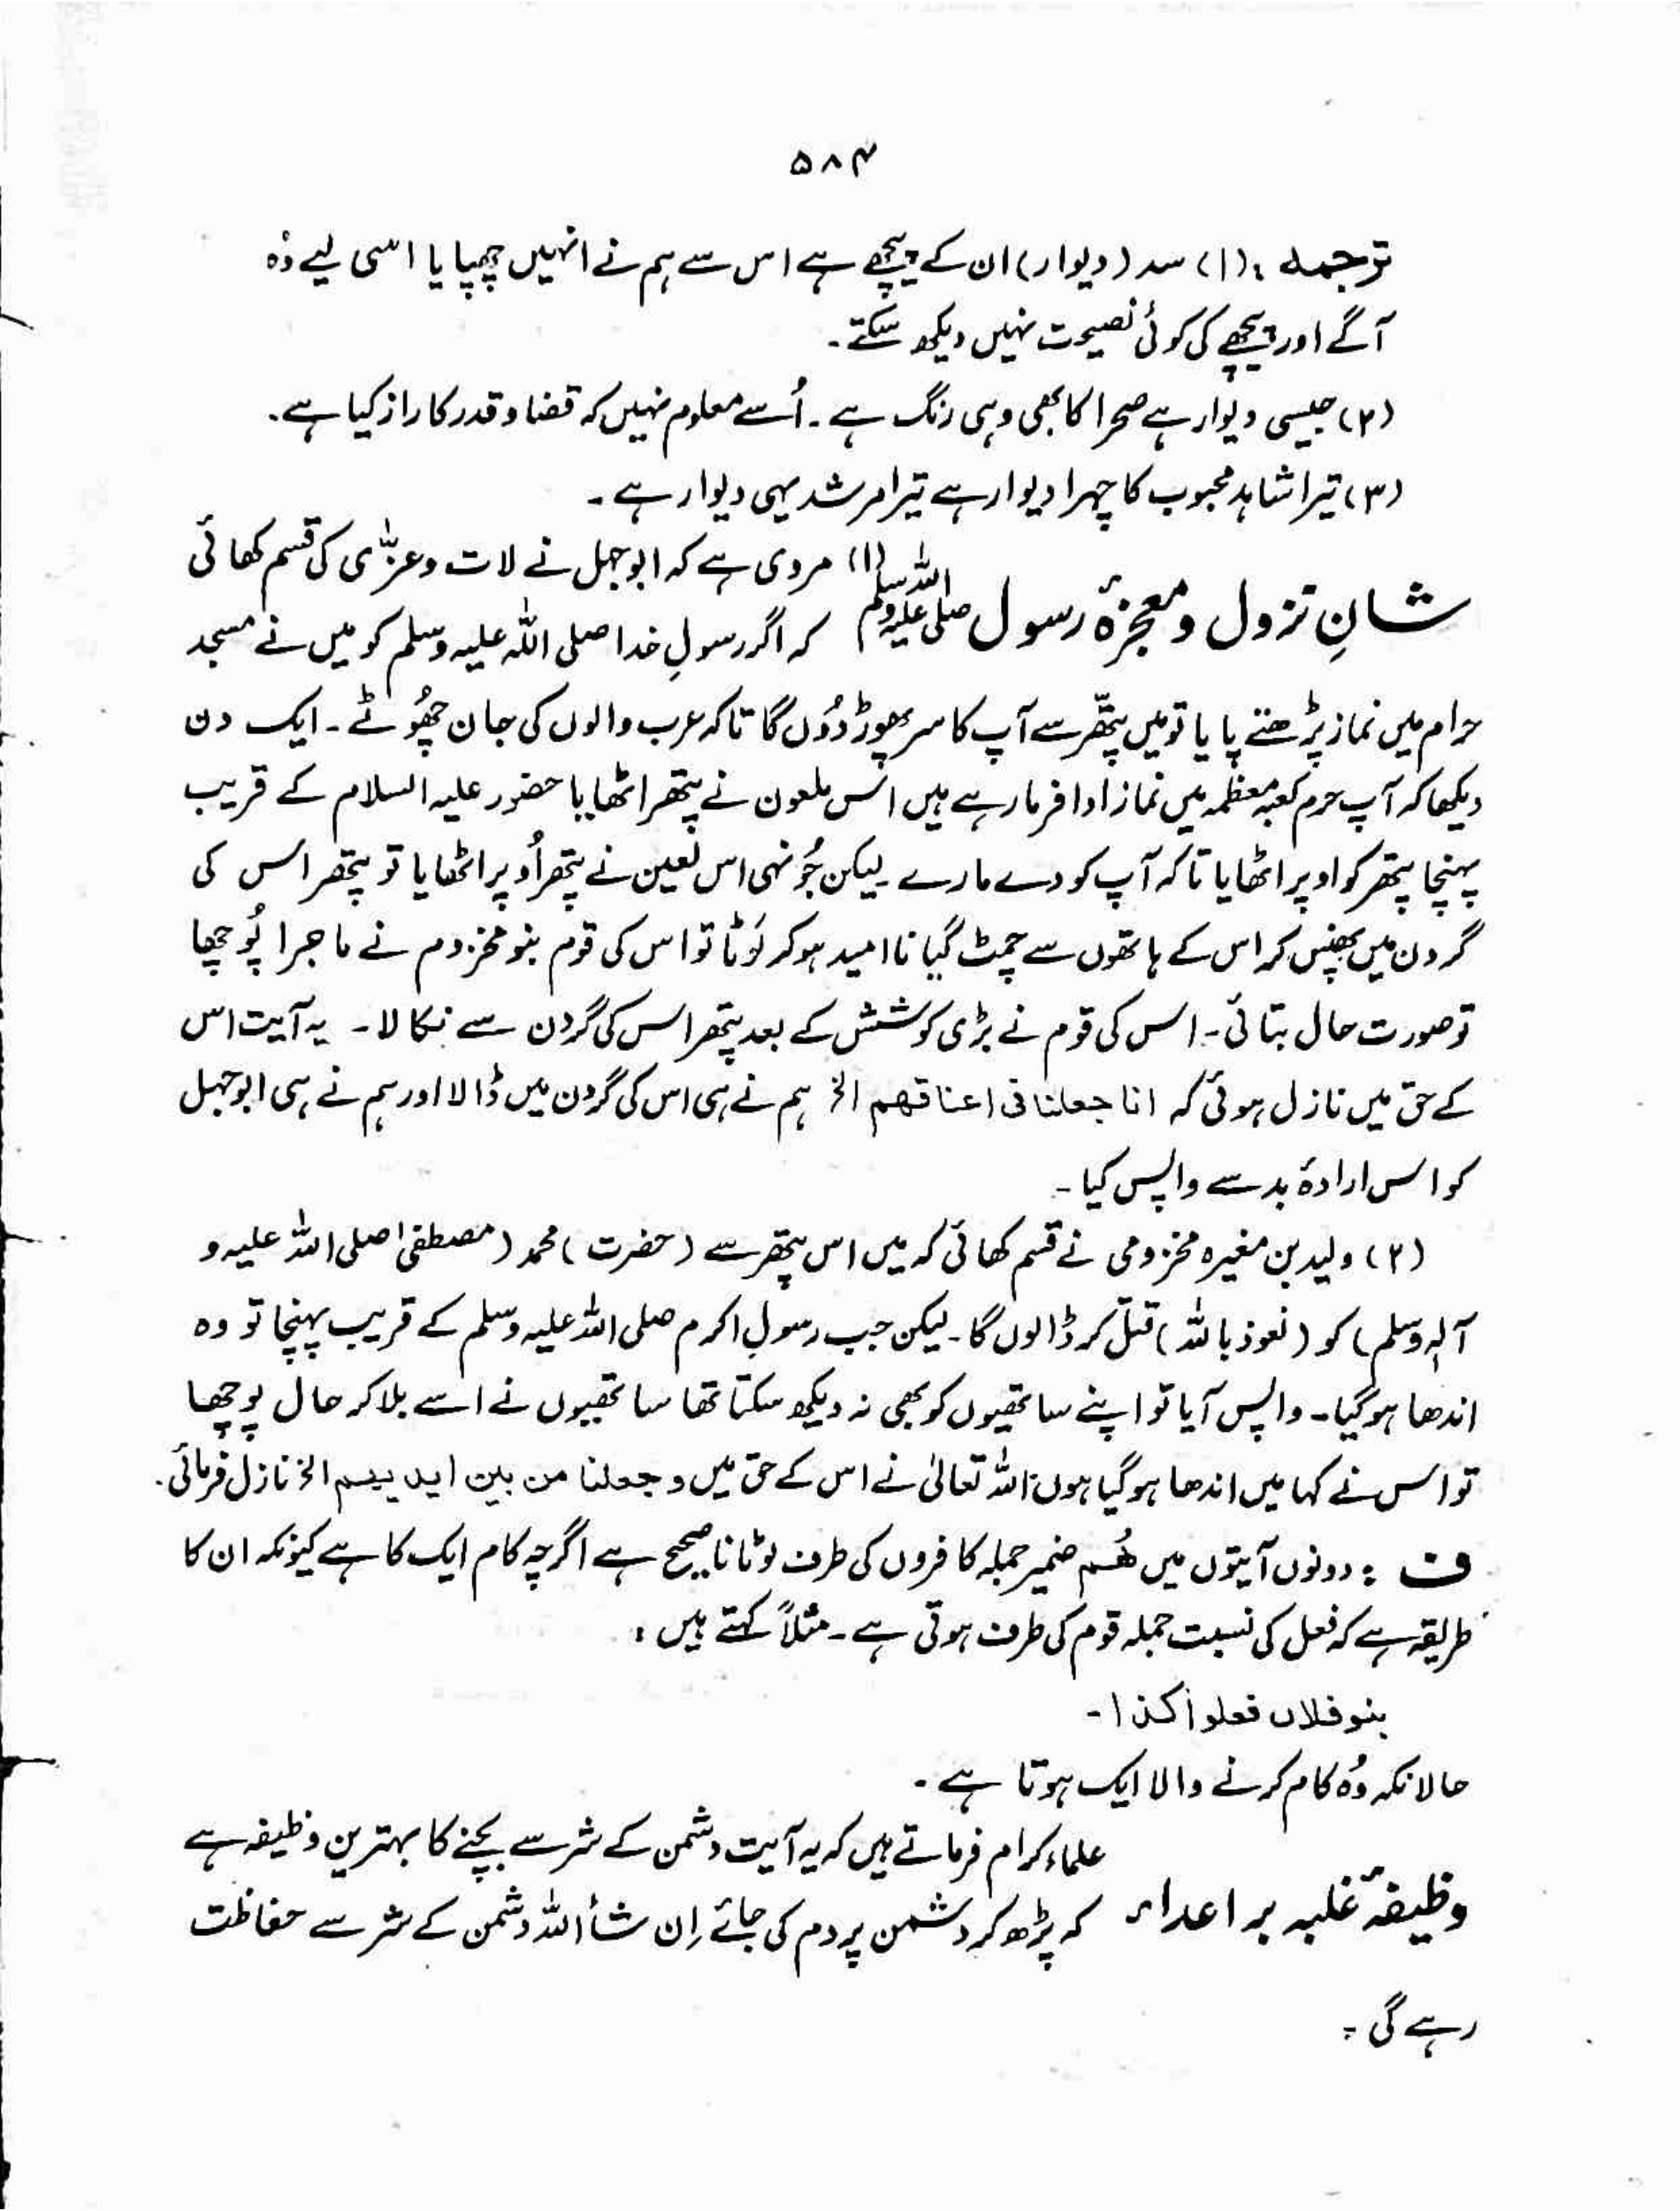 ۵۸۴
ترجمہ : (۱) سد (دیوار) ان کے پیچھے ہے اس سے ہم نے انھیں چھپایا اسی لیے وُہ
آگے اور پیچھے کی کوئی نصیحت نہیں دیکھ سکتے۔
(۲) جیسی دیوار ہے صحرا کا بھی وہی رنگ ہے۔ اُسے معلوم نہیں کہ قضا و قدر کا راز کیا ہے۔
(۳) تیرا شاہد محبوب کا چہرا دیوار ہے تیرا مرشد یہی دیوار ہے۔
شانِ نزول و معجزۂ رسول صلی اللہ علیہ وسلم (۱) مروی ہے کہ ابوجہل نے لات و عزّٰی کی قسم کھائی
کہ اگر رسولِ خدا صلی اللہ علیہ وسلم کو میں نے مسجد
حرام میں نماز پڑھتے پایا تو میں پتھّر سے آپ کا سر پھوڑ دُوں گا تاکہ عرب والوں کی جان چھُوٹے۔ ایک دن
دیکھا کہ آپ حرم کعبہ معظمہ میں نماز ادا فرما رہے ہیں اس ملعون نے پتھر اٹھایا حضور علیہ السلام کے قریب
پہنچا پتھر کو اوپر اٹھایا تاکہ آپ کو دے مارے لیکن جُونہی اس لعین نے پتھر اُوپر اٹھایا تو پتھر اس کی
گردن میں پھنس کر اس کے ہاتھوں سے چمٹ گیا نا امید ہوکر لَوٹا تو اس کی قوم بنو مخزوم نے ماجرا پُوچھا
تو صورت حال بتائی۔ اس کی قوم نے بڑی کوشش کے بعد پتھر اس کی گردن سے نکالا۔ یہ آیت اس
کے حق میں نازل ہوئی کہ انا جعلنا فی اعناقھم الخ ہم نے ہی اس کی گردن میں ڈالا اور ہم نے ہی ابوجہل
کو اس ارادۂ بد سے واپس کیا۔
(۲) ولید بن مغیرہ مخزومی نے قسم کھائی کہ میں اس پتھر سے (حضرت) محمد (مصطفیٰ صلی اللہ علیہ و
آلہٖ وسلم) کو (نعوذ باللہ) قتل کر ڈالوں گا۔ لیکن جب رسولِ اکرم صلی اللہ علیہ وسلم کے قریب پہنچا تو وہ
اندھا ہوگیا۔ واپس آیا تو اپنے ساتھیوں کو بھی نہ دیکھ سکتا تھا ساتھیوں نے اسے بلا کر حال پوچھا
تو اس نے کہا میں اندھا ہوگیا ہوں اللہ تعالیٰ نے اس کے حق میں وجعلنا من بین ایدیہم الخ نازل فرمائی۔
ف : دونوں آیتوں میں ھُم ضمیر جملہ کافروں کی طرف لوٹانا صحیح ہے اگرچہ کام ایک کا ہے کیونکہ ان کا
طریقہ ہے کہ فعل کی نسبت جملہ قوم کی طرف ہوتی ہے۔ مثلاً کہتے ہیں :
بنو فلاں فعلوا کذا۔
حالانکہ وُہ کام کرنے والا ایک ہوتا ہے۔
علماء کرام فرماتے ہیں کہ یہ آیت دشمن کے شر سے بچنے کا بہترین وظیفہ ہے
وظیفۂ غلبہ بر اعداء کہ پڑھ کر دشمن پر دم کی جائے اِن شاءاللہ دشمن کے شر سے حفاظت
رہے گی۔